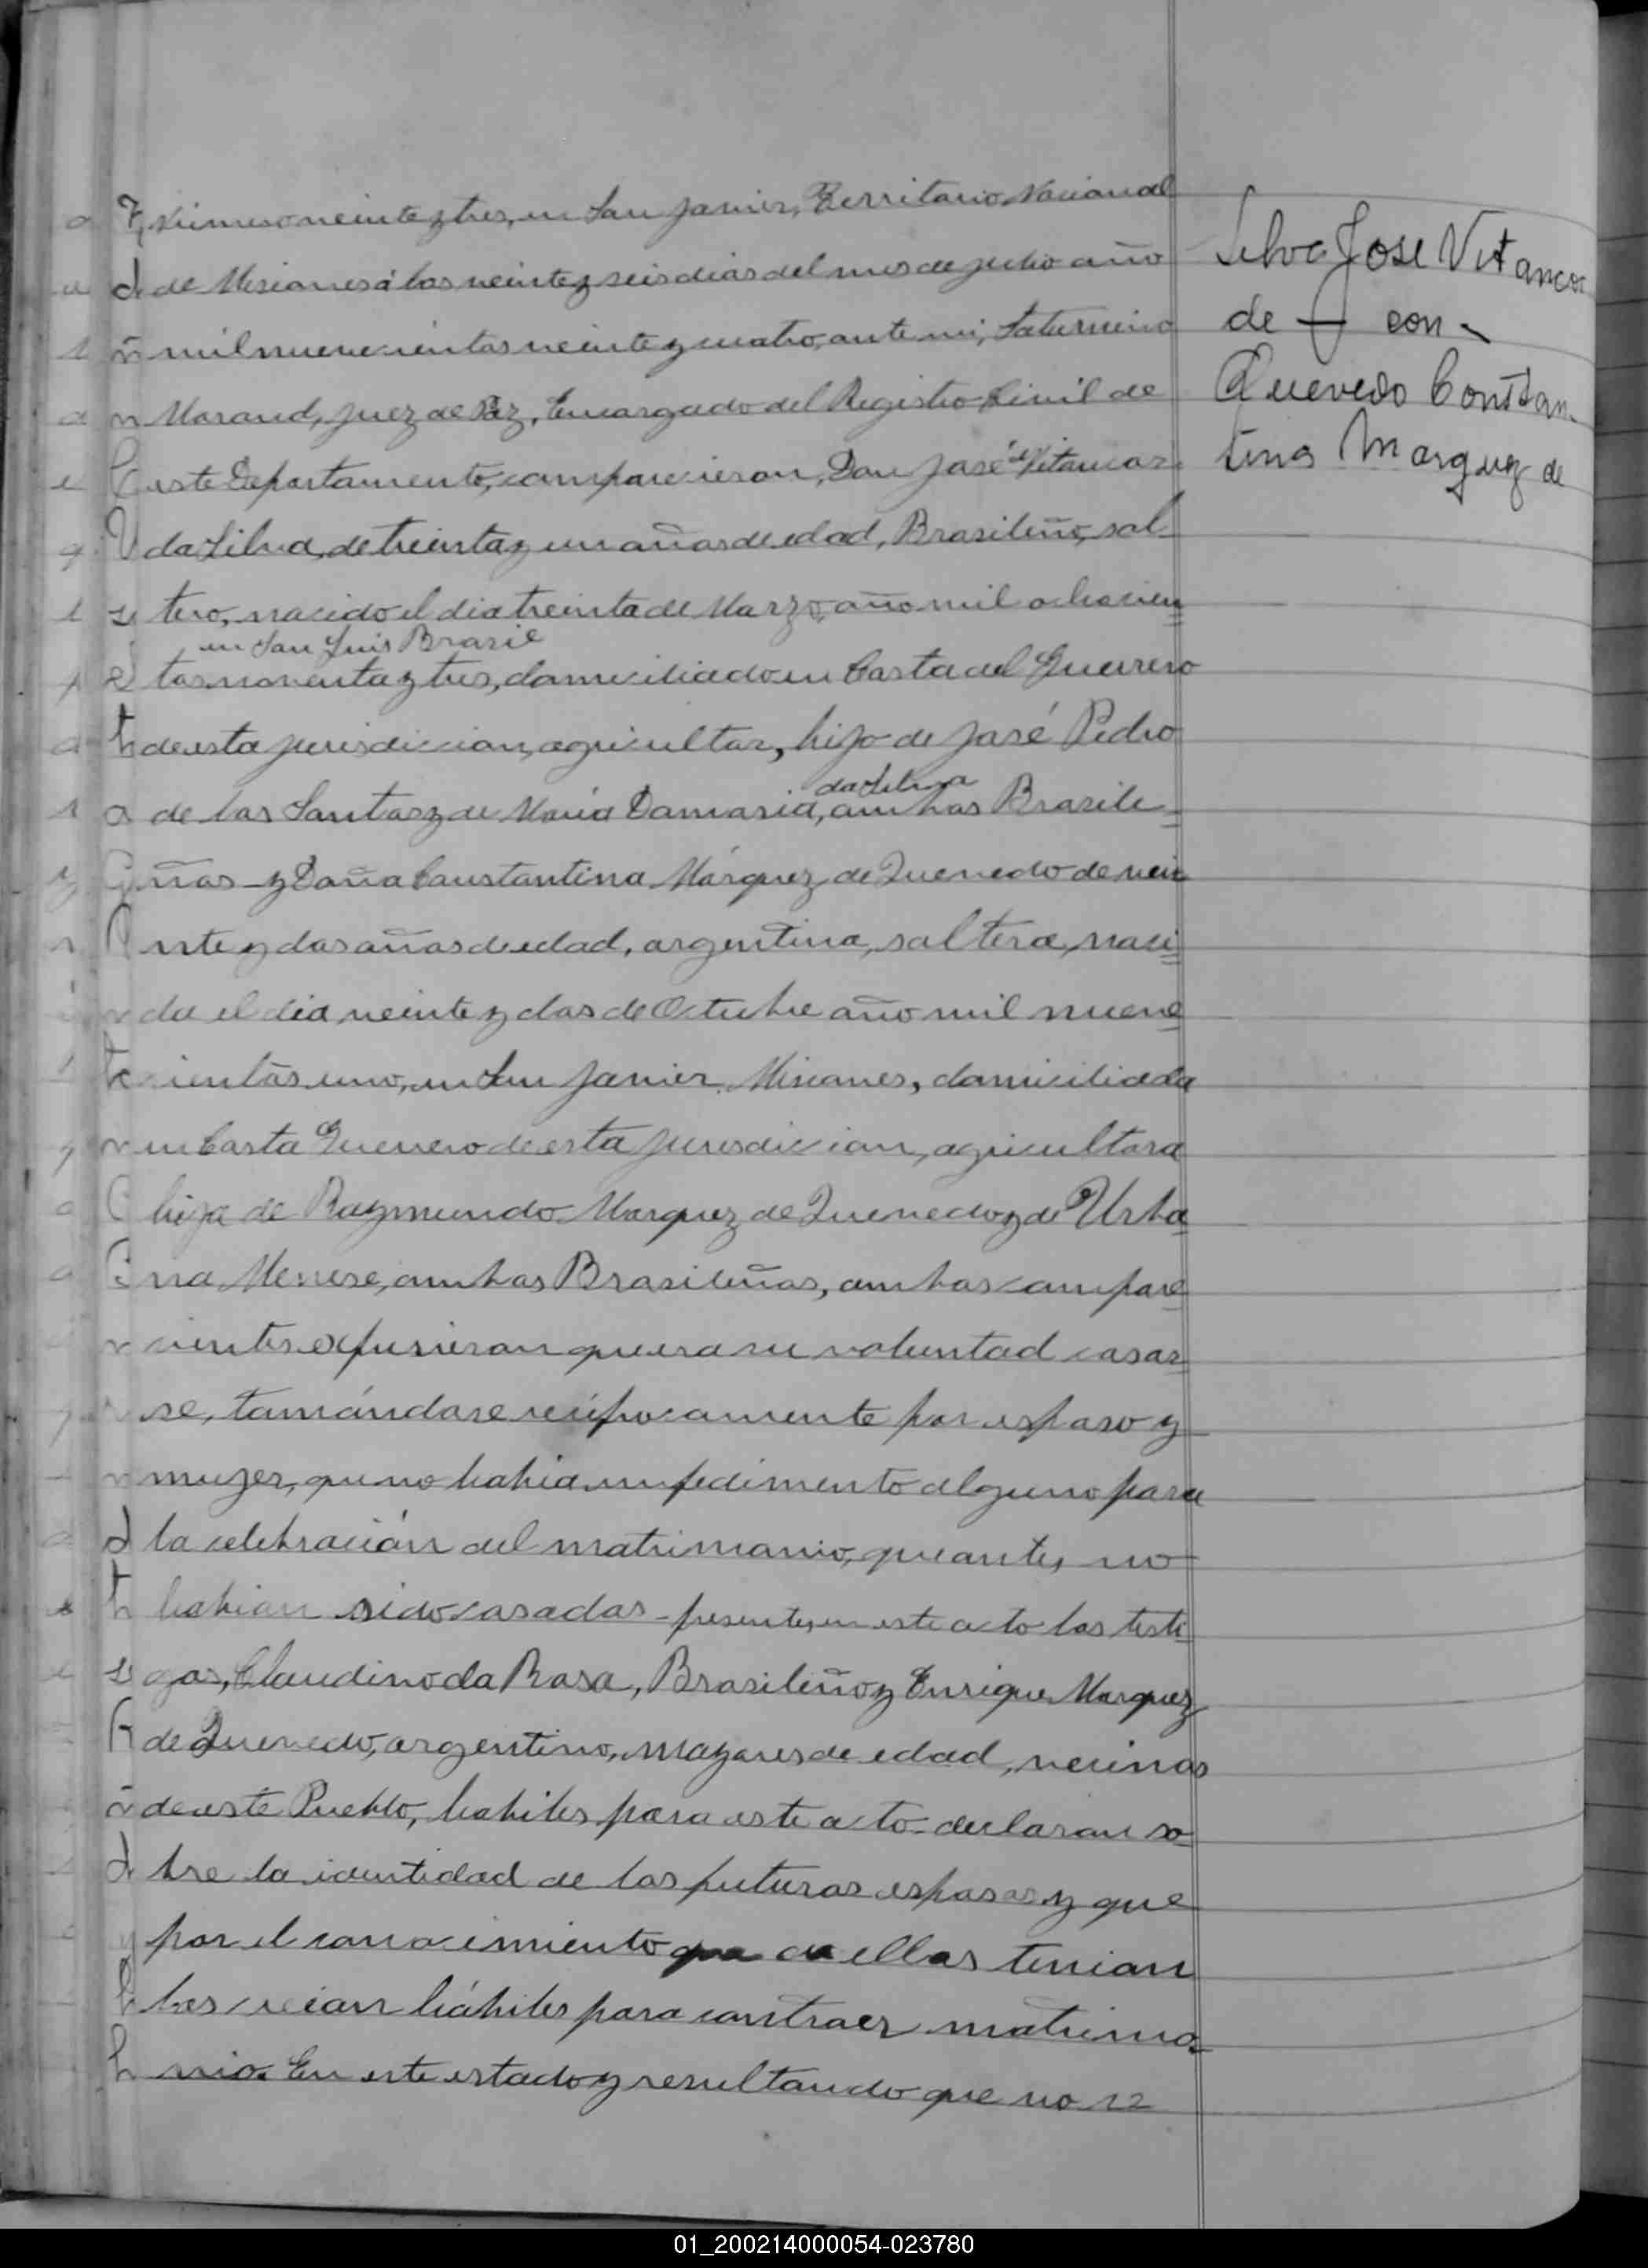 Número veinte y tres, en San Javier, Territorio Nacional
de Misiones á los veinte y seis dias del mes de Julio año
mil novecientos veinte y cuatro, ante mi, Saturnino
Morand, Juez de Paz, Encargado del Registro Civil de
este Departamento, comparecieron, Don José Vitancor
da Silva, de treinta y un años de edad, Brasileño, sol-
tero, nacido el dia treinta de Marzo, año mil ochocien
en San Luis Brasil
tos noventa y tres, domiciliado en Costa del Guerrero
de esta jurisdiccion, agricultor, hijo de José Pedro
da Silva
de los Santos y de María Damasia, ambos Brasile-
ños y Doña Constantina Márquez de Quevedo de vein
nte y dos años de edad, argentina, soltera, naci
da el dia veinte y dos de Octubre año mil nueve
cientos uno, en San Javier Misiones, domiciliada
en Costa Guerrero de esta jurisdiccion, agricultora
hija de Raymundo Marquez de Quevedo y de Urba
na Menese, ambos Brasileños, ambos compare
cientes expusieron que era su voluntad casar
se, tomándose recíprocamente por esposo y
mujer, que no habia impedimento alguno para
la celebración del matrimonio, que antes no
habian sido casados - presentes en este acto los testi
gos, Claudino da Rosa, Brasileño y Enrique Marquez
de Quevedo, argentino, mayores de edad, vecinos
de este Pueblo, habiles para este acto declaran so
bre la identidad de los futuros esposos y que
por el conocimiento que de ellos tenian
los creian hábiles para contraer matrimo
nio. En este estado y resultando que no
Silva José Vitancor
de con
Quevedo Constan
tina Marquez de
01_200214000054-023780